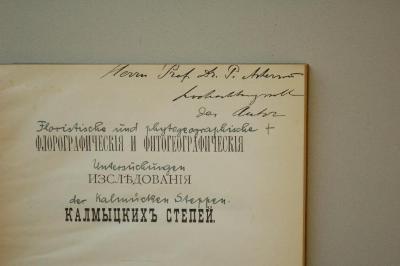 Herrn Prof. Dr. P. Ascherson
hochachtungsvoll
der Autor
Floristische und phytogeographische +
ФЛОРОГРАФИЧЕСКІЯ И ФИТОГЕОГРАФИЧЕСКІЯ
Untersuchungen
ИЗСЛѢДОВАНІЯ
der Kalmücken Steppen.
КАЛМЫЦКИХЪ СТЕПЕЙ.